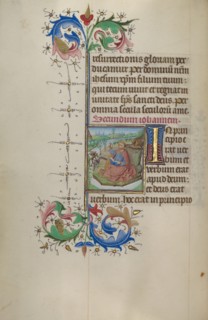 insurrectionis gloriam per
ducamur per dominum nrm
ihesum xpm filium tuum
qui tecum vivit et regnat in
unitate sps sancti deus per
omnia secula seculorum ame
Secundum iohannem
IN prin
cipio e
rat ver
bum et
verbum erat
apud deum
et deus erat
verbum hoc erat in principio